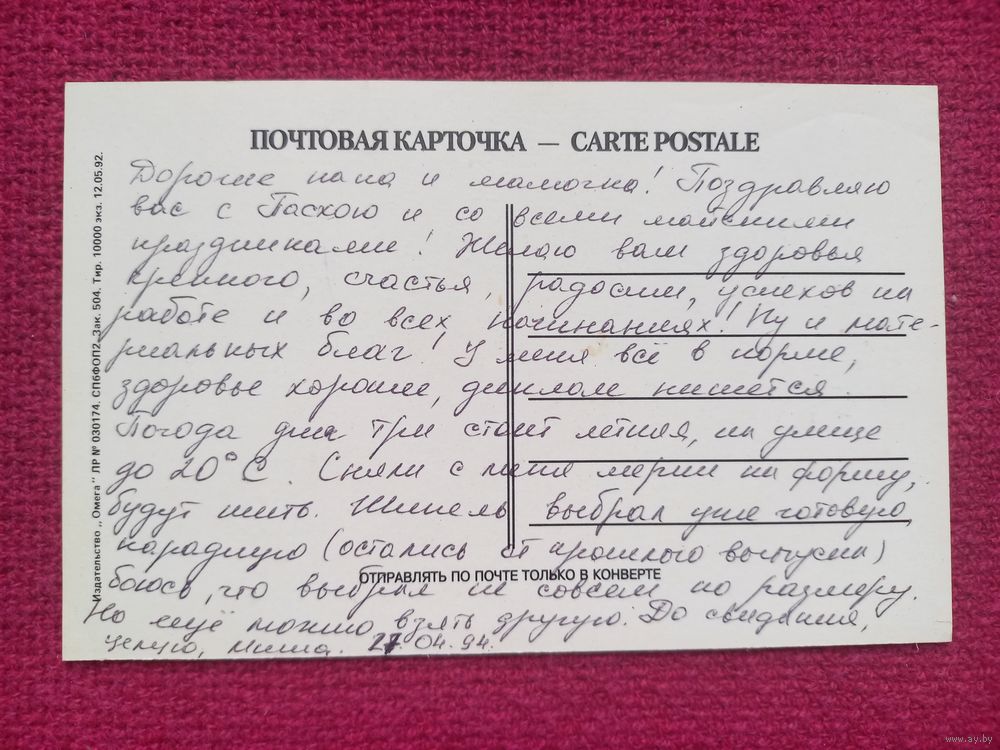 ПОЧТОВАЯ КАРТОЧКА — CARTE POSTALE
Дорогие папа и мамочка! Поздравляю
вас с Пасхою и со всеми майскими
праздниками! Желаю вам здоровья
крепкого, счастья, радости, успехов на
работе и во всех начинаниях! Ну и мате-
риальных благ! У меня всё в норме,
здоровье хорошее, диплом пишется.
Погода дня три стоит летняя, на улице
до 20°С. Сняли с меня мерки на форму,
будут шить. Шинель выбрал уже готовую,
парадную (остались от прошлого выпуска)
боюсь, что выбрал не совсем по размеру.
Но ещё можно взять другую. До свидания,
целую, Миша. 27.04.94.
ОТПРАВЛЯТЬ ПО ПОЧТЕ ТОЛЬКО В КОНВЕРТЕ
Издательство „Омега" ЛР № 030174. СПбФОП2. Зак. 504. Тир. 10000 экз. 12.05.92.
www.ay.by